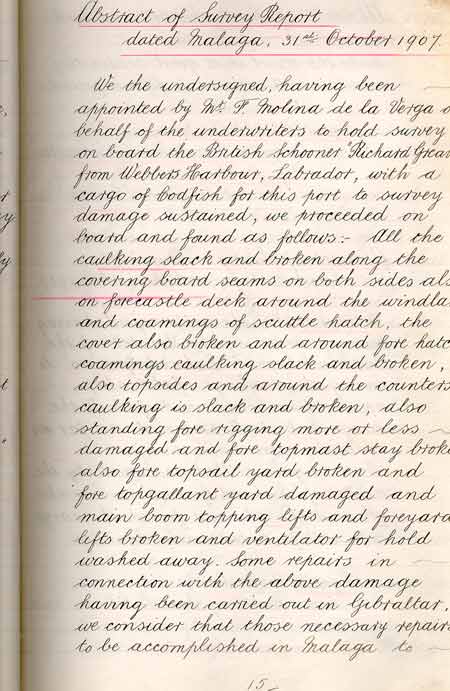 Abstract of Survey Report
dated Malaga, 31st October 1907.
We the undersigned, having been
appointed by Mr. F. Molina de la Verga o
behalf of the underwriters to hold survey
on board the British Schooner "Richard Greav
from Webbers Harbour, Labrador, with a
cargo of Codfish for this port to survey
damage sustained, we proceeded on
board and found as follows:- All the
caulking slack and broken along the
covering board seams on both sides als
on forecastle deck around the windla
and coamings of scuttle hatch, the
cover also broken and around fore hatc
coamings caulking slack and broken,
also topsides and around the counters
caulking is slack and broken, also
standing fore rigging more or less
damaged and fore topmast stay broke
also fore topsail yard broken and
fore topgallant yard damaged and
main boom topping lifts and foreyard
lifts broken and ventilator for hold
washed away. Some repairs in
connection with the above damage
having been carried out in Gibraltar,
we consider that those necessary repairs
to be accomplished in Malaga to
15-